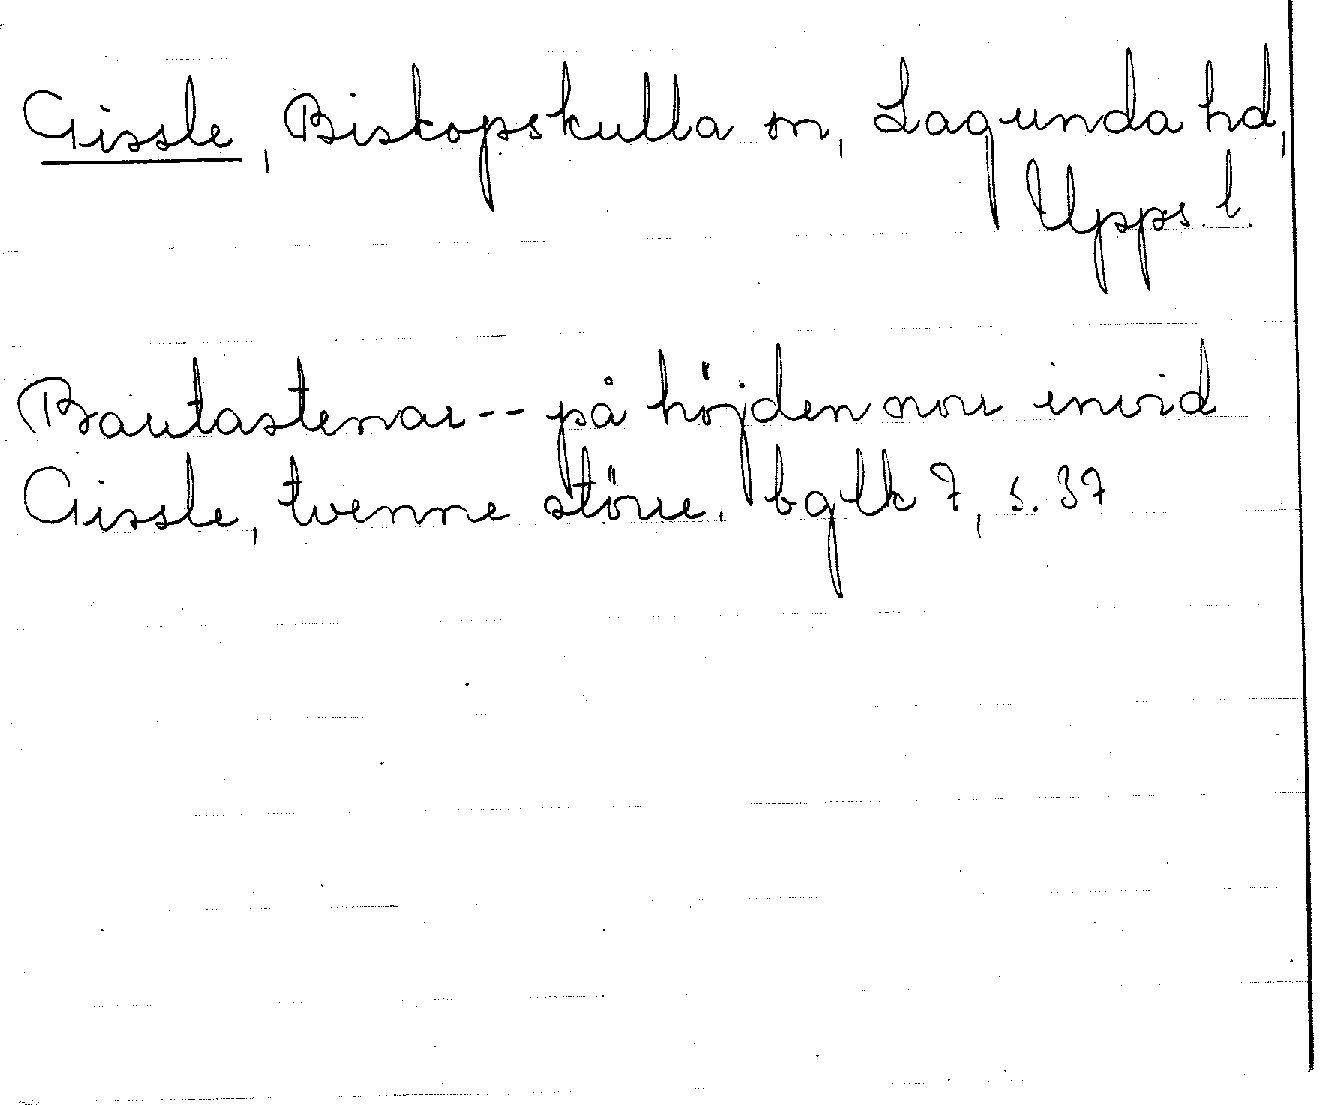 Gissle, Biskopskulla sn, Lagunda hd,
Upps. l.
Bautastenar -- på höjden norr invid
Gissle, tvenne större. bglk 7, s. 37